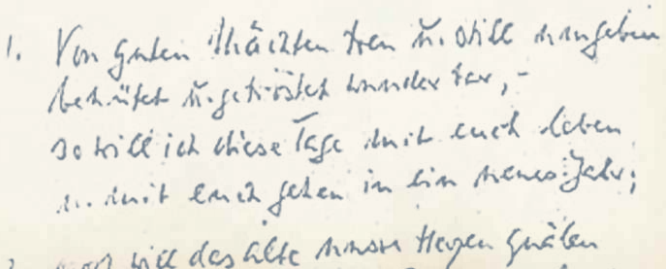 1. Von guten Mächten treu u. still umgeben
behütet u. getröstet wunderbar, -
so will ich diese Tage mit euch leben
u. mit euch gehen in ein neues Jahr;
2. noch will das alte unsre Herzen quälen